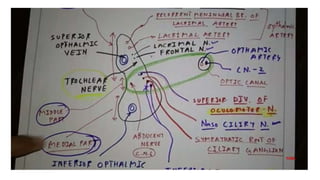 RECURRENT MENINGEAL BR. OF
LACRIMAL ARTERY
LACRIMAL ARTERY
LACRIMAL N.
FRONTAL N.
SUPERIOR
OPTHALMIC
VEIN
OPTHAMIC
ARTERY
CN-2
OPTIC CANAL
TROCHLEAR
NERVE
SUPERIOR DIV. OF
OCULOMOTER N.
NASO CILIRY N.
MIDDLE
PART
MEDIAL PART
ABDUCENT
NERVE
SYMPATHATIC ROOT OF
CILIARY GANGLION
INFERIOR OPTHALMIC